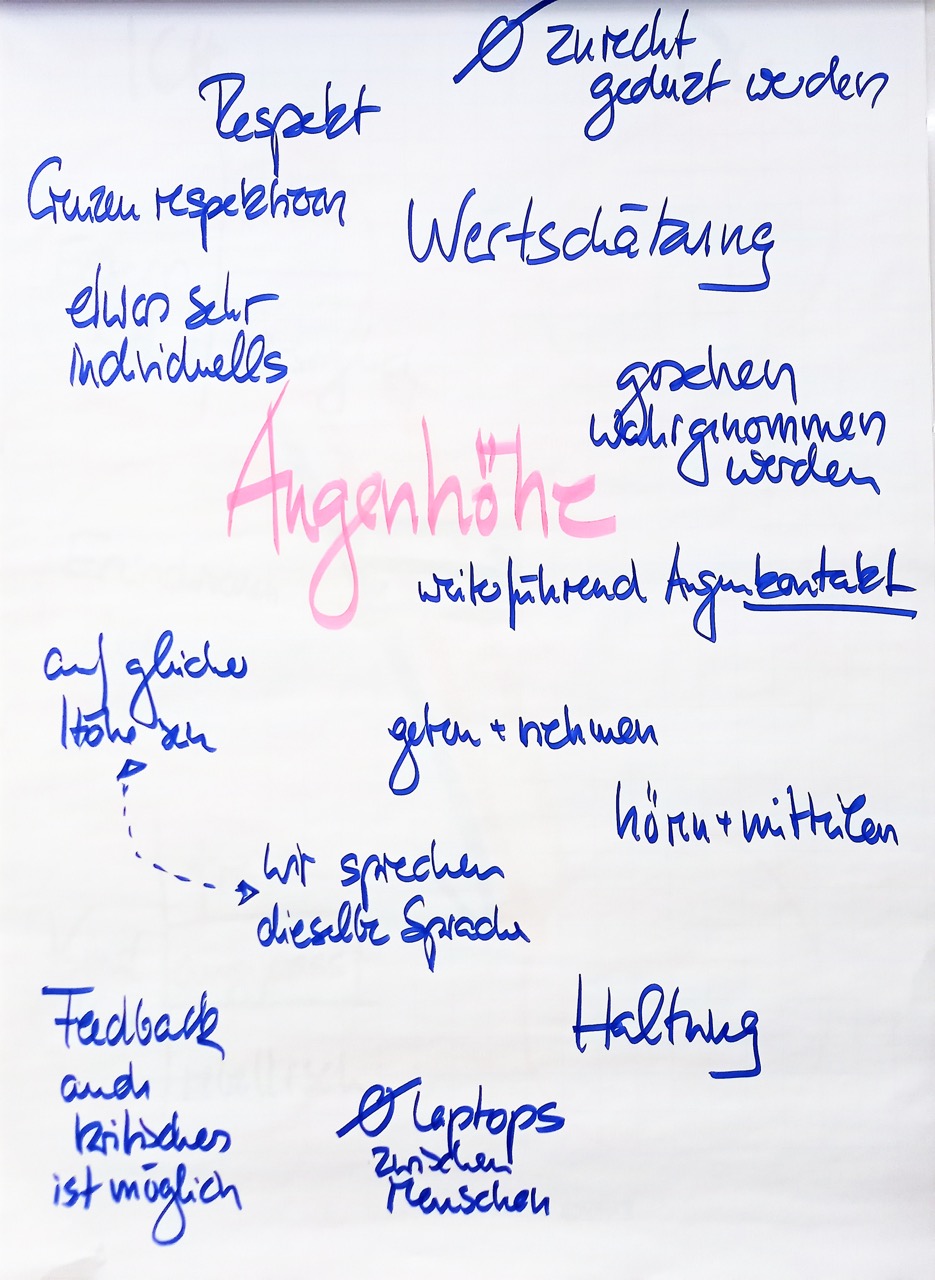 Ø zurecht
geduzt werden
Respekt
Grenzen respektieren
Wertschätzung
etwas sehr
individuells
gesehen
wahrgenommen
werden
Augenhöhe
weiterführend Augenkontakt
auf gleicher
Höhe sein
geben + nehmen
hören + mitteilen
wir sprechen
dieselbe Sprache
Feedback
auch
kritisches
ist möglich
Haltung
Ø Laptops
zwischen
Menschen